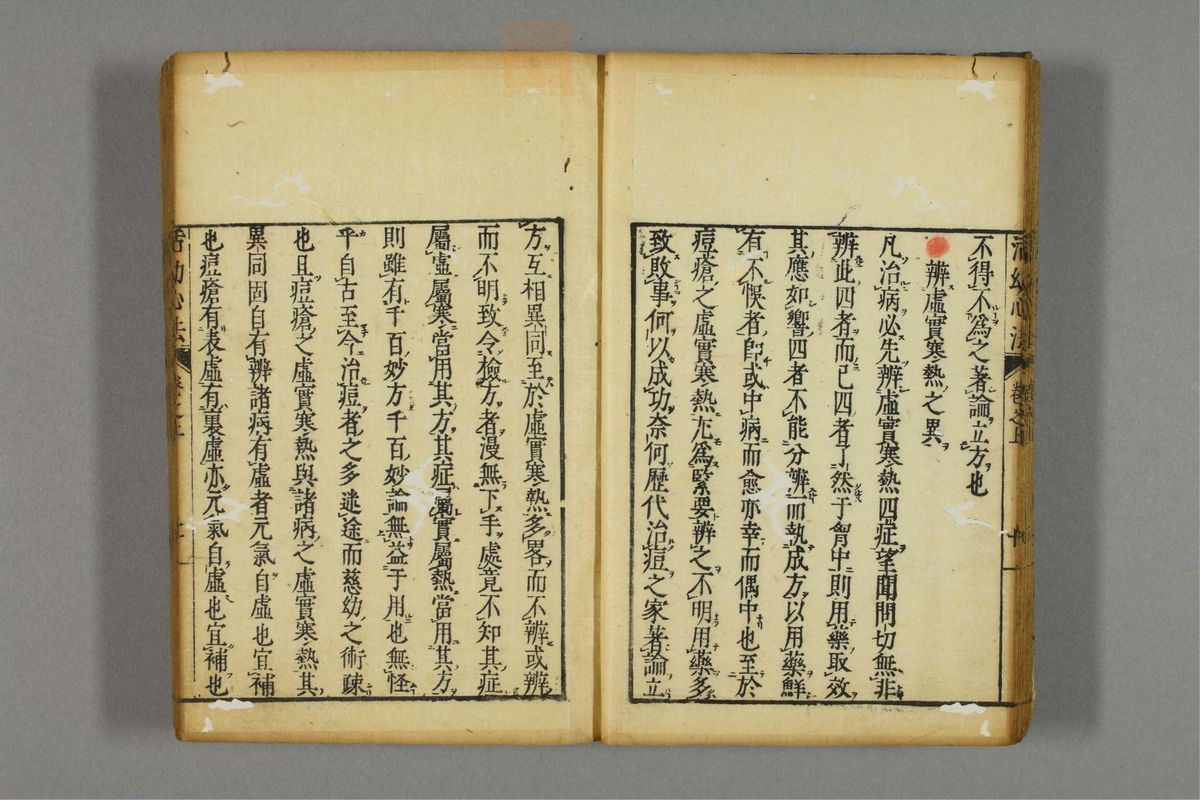 活幼心法
卷之上
不得不爲之著論立方也
辨虛實寒熱之異
凡治病必先辨虛實寒熱四症望聞問切無非
辨此四者而已四者了然于胷中則用藥取效
其應如響四者不能分辨而執成方以用藥鮮
有不悞者卽或中病而愈亦幸而偶中也至於
痘瘡之虛實寒熱尤爲緊要辨之不明用藥多
致敗事何以成功奈何歷代治痘之家著論立
方互相異同至於虛實寒熱多畧而不辨或辨
而不明致令檢方者漫無下手處竟不知其症
屬虛屬寒當用其方其症屬實屬熱當用其方
則雖有千百妙方千百妙論無益于用也無怪
乎自古至今治痘者之多迷途而慈幼之術疎
也且痘瘡之虛實寒熱與諸病之虛實寒熱其
異同固自有辨諸病有虛者元氣自虛也宜補
也痘瘡有表虛有裏虛亦元氣自虛也宜補也
活幼心法